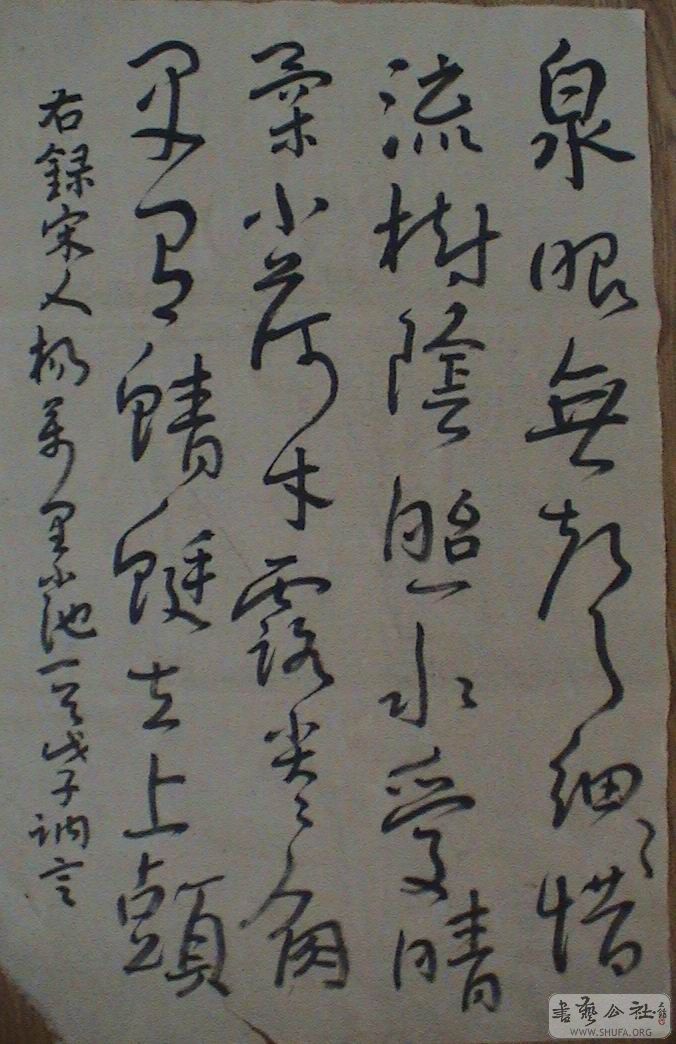 泉眼無聲細惜
流樹陰照水愛晴
柔小荷才露尖々角
早有蜻蜓立上頭
右録宋人楊萬里小池一首戊子訥言
書藝公社
WWW.SHUFA.ORG